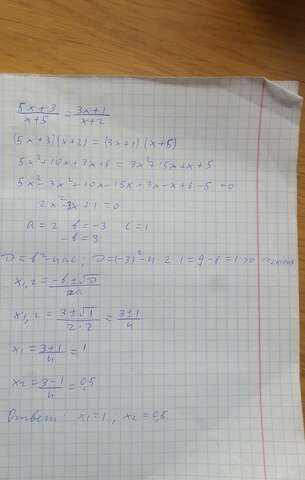 (5x+3)/(x+5) = (3x+1)/(x+2)
(5x+3)(x+2) = (3x+1)(x+5)
5x²+10x+3x+6 = 3x²+15x+x+5
5x²-3x²+10x-15x+3x-x+6-5=0
2x²-3x+1=0
a=2 b=-3 c=1
-b=3
D=b²-4ac, D=(-3)²-4·2·1=9-8=1>0
x1,2 = (-b±√D)/2a
x1,2 = (3±√1)/(2·2) = (3±1)/4
x1 = (3+1)/4 = 1
x2 = (3-1)/4 = 0,5
Ответ: x1=1, x2=0,5.